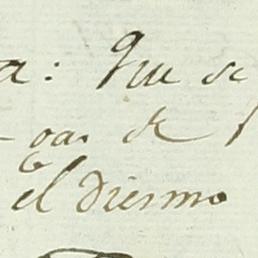 a: Que se
oa. de
el diesmo